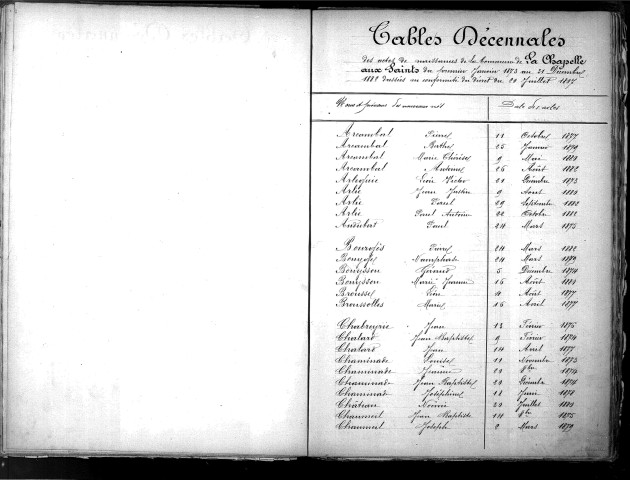 Tables Décennales
des actes de naissances de la Commune de La Chapelle
aux Saints du premier Janvier 1873 au 31 Décembre
1882 dressées en conformité du décret du 20 Juillet 1807
Noms et prénoms des nouveaux nés Date des actes
Arcambal Pierre 11 Octobre 1877
Arcambal Berthe 25 Janvier 1879
Arcambal Marie Thérèse 9 Mai 1880
Arcambal Antoine 26 Août 1882
Léon Victor 21 Décembre 1873
Arlie Jean Justin 9 Avril 1880
Arlie Paul 29 Septembre 1882
Arlie Paul Antoine 22 Octobre 1882
Paul 24 Mars 1875
Bourgès 24 Mars 1882
24 Mars 1879
Bouysson 5 Décembre 1874
Bouysson Marie 16 Août
Brousse Août 1877
Broussolles Marie 16 Avril 1877
Chabreyrie Jean 13 Février 1875
Chalard Jean Baptiste 9 Février 1874
Chalard Jean 14 Avril 1877
Chaminade Louise 11 Novembre 1873
Chaminade 21 1874
Chaminade Jean Baptiste 20 Décembre 1876
Chaminat Joséphine 11 Juin 1878
Château 20 Juillet 1880
Chaumeil Jean Baptiste 14 1875
Chaumeil Joseph 2 Mars 1879